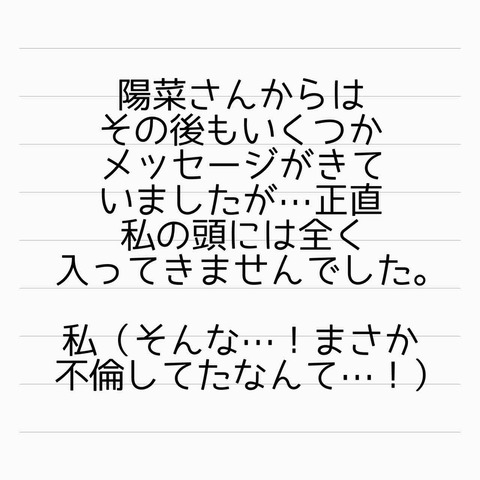 陽菜さんからは
その後もいくつか
メッセージがきて
いましたが…正直
私の頭には全く
入ってきませんでした。
私（そんな…！まさか
不倫してたなんて…！）